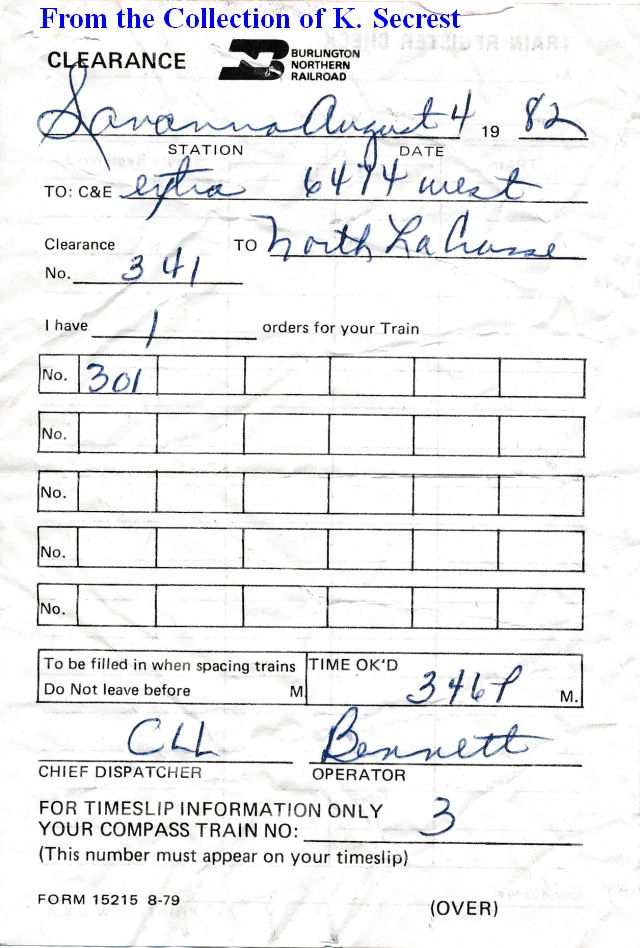 From the Collection of K. Secrest
CLEARANCE
BURLINGTON
NORTHERN
RAILROAD
Savanna August 4 19 82
STATION DATE
TO: C&E extra 6414 west
Clearance TO North La Crosse
No. 341
I have 1 orders for your Train
No. 301
No.
No.
No.
No.
To be filled in when spacing trains TIME OK'D
Do Not leave before M. 346 P M.
CLL Bennett
CHIEF DISPATCHER OPERATOR
FOR TIMESLIP INFORMATION ONLY
YOUR COMPASS TRAIN NO: 3
(This number must appear on your timeslip)
FORM 15215 8-79
(OVER)